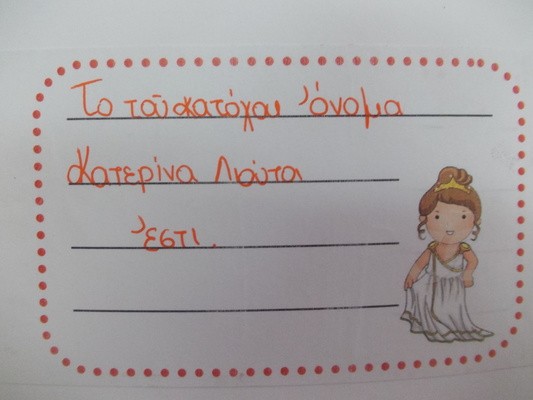 Το τοῦ κατόχου ὄνομα
Κατερίνα Λιούτα
ἔστι.